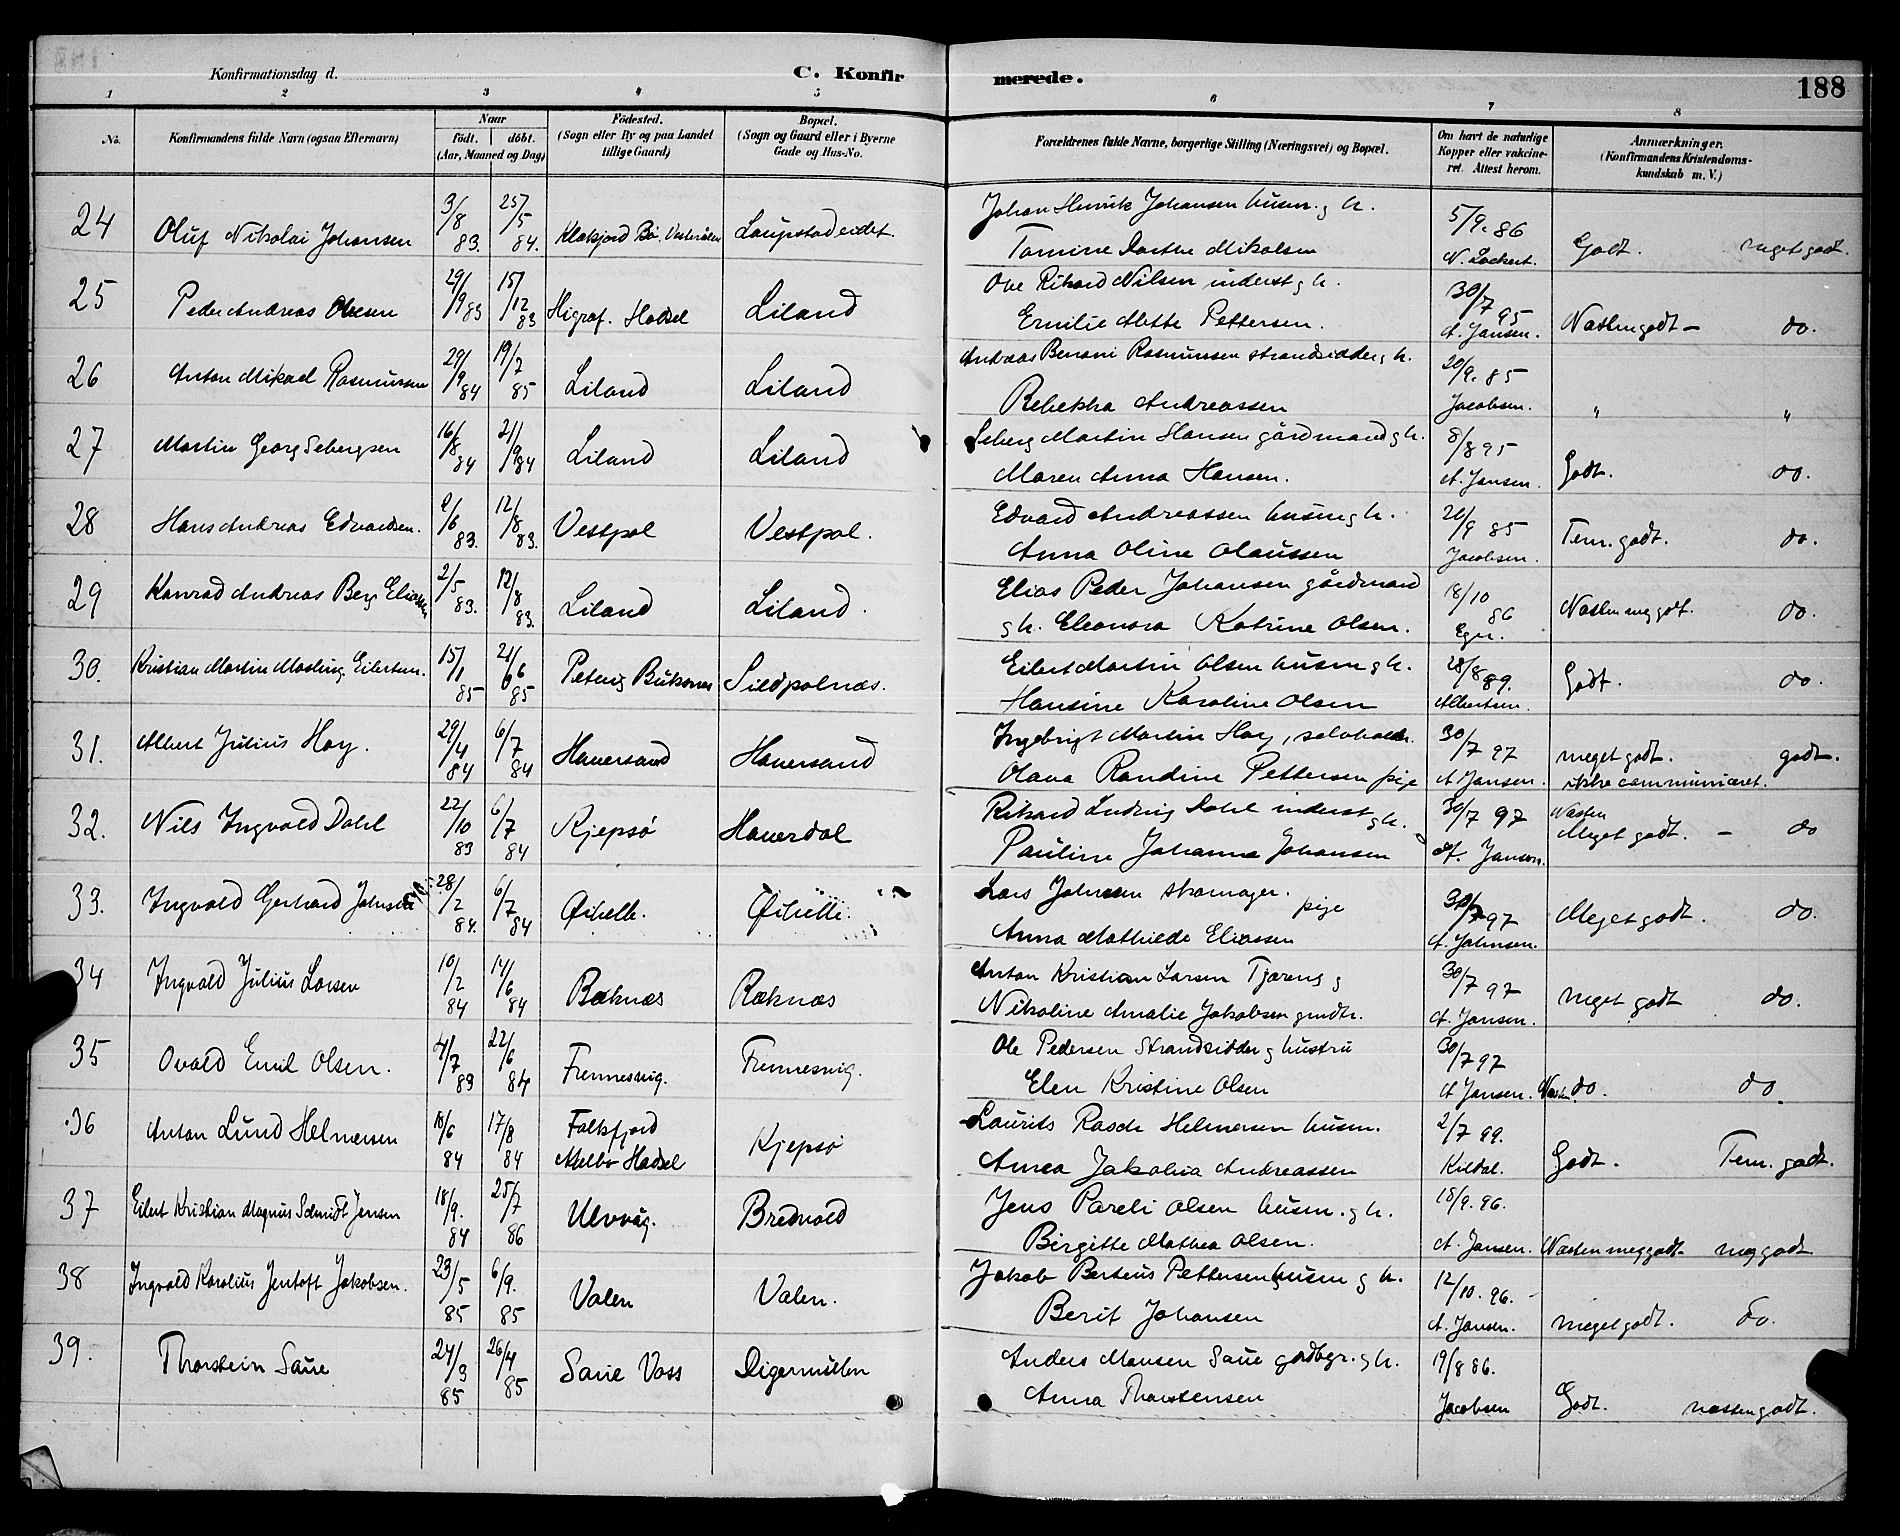 Konfirmationsdag d. C. Konfirmerede. 188
1 2 3 4 5 6 7 8
No. Konfirmandens fulde Navn (ogsaa Efternavn) Naar født. døbt. (Aar, Maaned og Dag) Fødested. (Sogn eller By og paa Landet tillige Gaard) Bopæl. (Sogn og Gaard eller i Byerne Gade og Hus-No. Forældrenes fulde Navne, borgerlige Stilling (Næringsvei) og Bopæl. Om havt de naturlige Kopper eller vakcineret. Attest herom. Anmærkninger. (Konfirmandens Kristendomskundskab m. V.)
24 Oluf Nikolai Johansen 3/8 83. 25/5 84. Klaksjord Bø. Vesterålen Laupstadeidet. Johan Henrik Johansen husm. g h.
Tomine Dorthe Mikalsen 5/9. 86 N. Lockert. Godt. meget godt.
25 Peder Andreas Olsen 29/9 83 15/12 83 Higraf. Hadsel Liland Ove Rikard Nilsen inderst g h.
Emilie Mette Pettersen. 30/7 95 A. Jansen. Næsten godt - do.
26 Anton Mikael Rasmussen 29/9 84 19/7 85 Liland Liland Andreas Benoni Rasmussen strandsidder g h.
Rebekka Andreassen 20/9. 85 Jacobsen. " "
27 Martin Georg Sebergsen 16/8 84 21/9 84 Liland Liland Seberg Martin Hansen gårdmand g h.
Maren Anna Hansen. 8/8 95 A. Jansen. Godt. do.
28 Hans Andreas Edvardsen. 2/6 83. 12/8 83. Vestpol Vestpol. Edvard Andreassen husm g h.
Anna Oline Olaussen 20/9 85 Jacobsen. Tem. godt. do.
29 Konrad Andreas Berg Eliassen 2/5 83. 12/8 83. Liland Liland. Elias Peder Johansen gårdmand
g h. Eleonora Katrine Olsen. 18/10 86 Eger. Næsten meg godt. do.
30. Kristian Martin Masling Eilertsen. 15/1 85 21/6 85 Peterig Buksnes Sildpolnæs. Eilert Martin Olsen husm g h.
Hansine Karoline Olsen 28/8 89. Albertsen. Godt. do.
31. Albert Julius Hoy. 29/4 84 6/7 84 Hanersand Hanersand Ingebrigt Martin Hoy,
Olava Randine Pettersen pige 30/7 97 A Jansen. meget godt. godt.
ikke communiceret.
32. Nils Ingvald Dahl 22/10 83 6/7 84 Kjepsø Hanerdal Rikard Ludvig Dahl inderst g h.
Pauline Johanna Johansen 30/7 97 A. Jansen. Næsten
Meget godt. - do
33. Ingvald Gerhard Johnsen 28/2 84. 6/7 84 Øihelle. Øihelle. Lars Johnsen skomager.
Anna Mathilde Eliassen pige 30/7 97 A. Johnsen. Meget godt. do.
34 Ingvald Julius Larsen 10/2 84 14/6 84 Ræknæs Ræknæs Anton Kristian Larsen Tjæreng g
Nikoline Amalie Jakobsen gmdtr. 30/7 97 A. Jansen. meget godt do.
35 Ovald Emil Olsen. 4/7 83 22/6 84 Frennesvig. Frennesvig. Ole Pedersen Strandsidder g hustru
Elen Kristine Olsen 30/7 97 A Jansen. Næsten do. do.
36 Anton Lund Helmersen 18/6 84 17/8 84 Falkfjord
Melbo Hadsel Kjepsø Laurits Rasch Helmersen husm.
Anna Jakobia Andreassen 2/7 99. Kildal. Godt. Tem. godt.
37 Eilert Kristian Magnus Schmidt Jensen 18/9. 84 25/7 86 Ulvvåg. Bredvold Jens Pareli Olsen husm. g h.
Birgitte Mathea Olsen. 18/9. 96. A. Jansen. Næsten meg godt. meg godt
38 Ingvald Karolius Jentoft Jakobsen. 23/5 85 6/9. 85 Valen Valen. Jakob Berteus Pettersen husm g h.
Berit Johansen 12/10. 96. A. Jansen. meget godt. do.
39. Thorstein Saue 24/3 85 26/4 85 Saue Voss Digermulen Anders Monsen Saue gårdbgr. g h.
Anna Thorstensen 19/8 86. Jacobsen Godt. næsten godt.